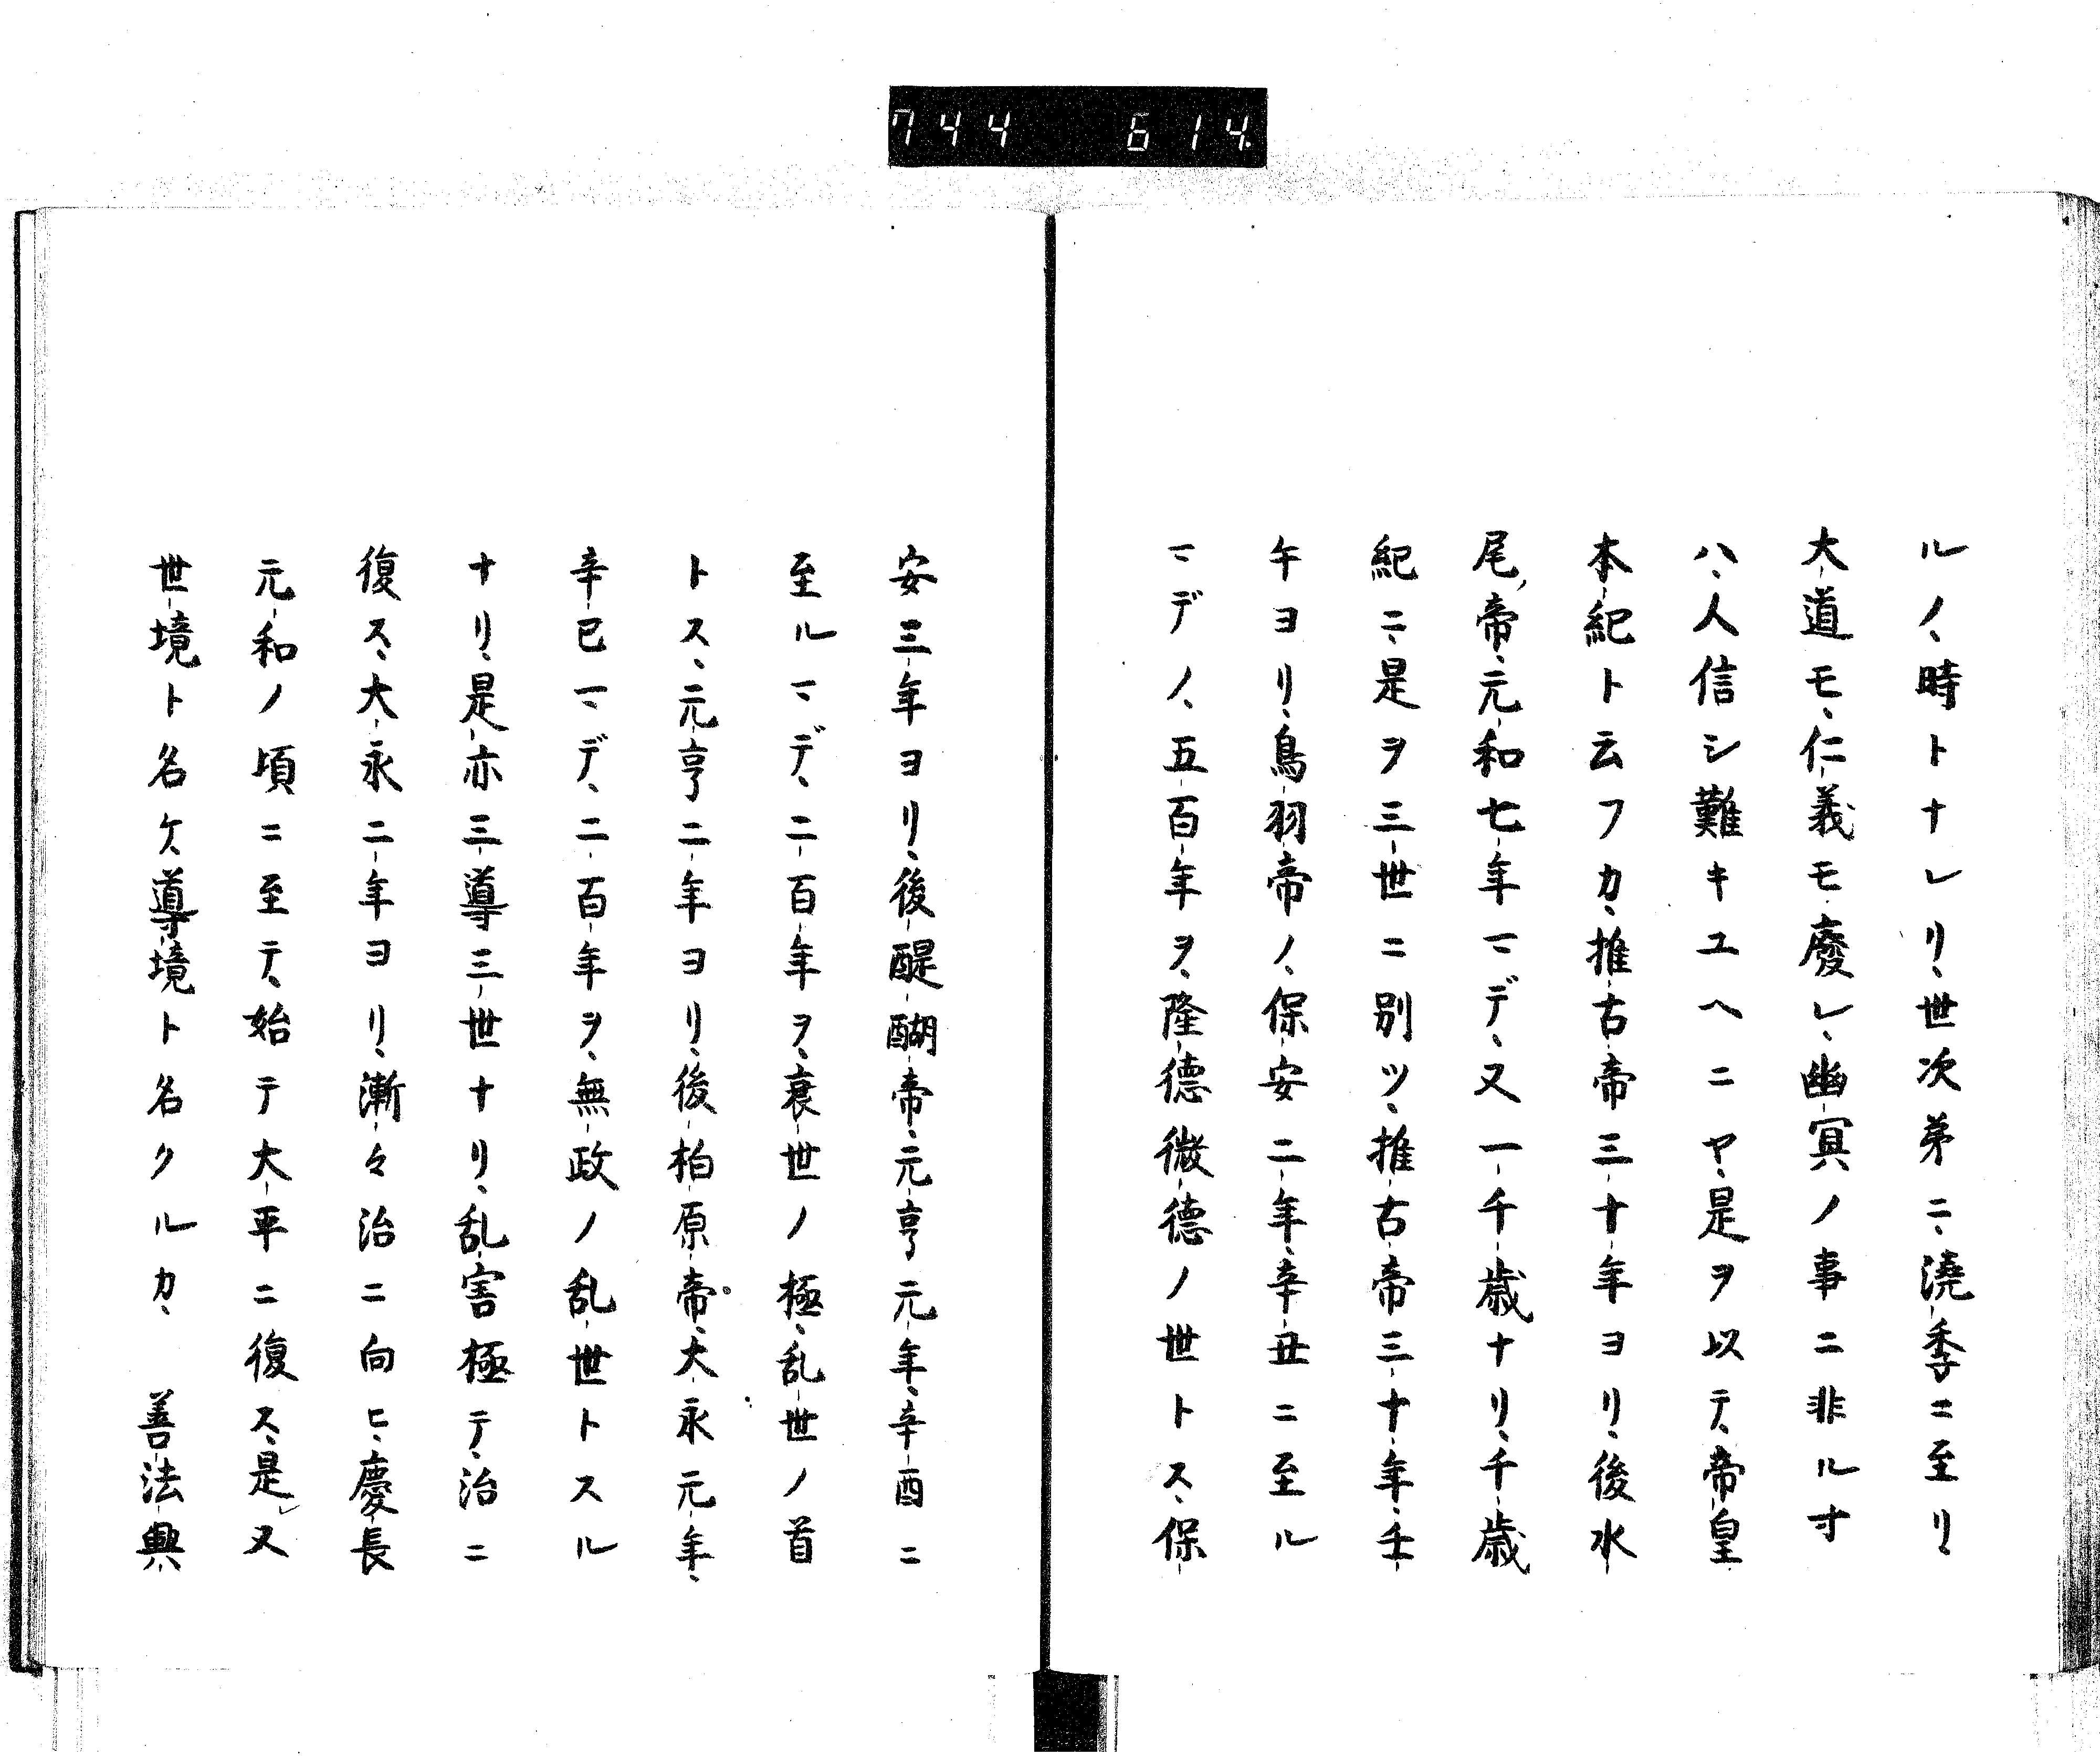 744 614
ルノ、時トナレリ、世次第ニ、澆季ニ至リ、
大道モ、仁義モ廢レ、幽冥ノ事ニ非ル寸
ハ、人信シ難キユヘニヤ、是ヲ以テ、帝皇
本紀ト云フカ、推古帝三十年ヨリ、後水
尾帝、元和七年マデ、又一千歳ナリ、千歳
紀ニ、是ヲ三世ニ別ツ、推古帝三十年、壬
午ヨリ、鳥羽帝ノ、保安二年、辛丑ニ至ル
マデノ、五百年ヲ、隆德微德ノ世トス、保
安三年ヨリ、後醍醐帝、元亨元年、辛酉ニ
至ルマデ、二百年ヲ、衰世ノ極、乱世ノ首
トス、元亨二年ヨリ、後柏原帝、大永元年、
辛巳マデ、二百年ヲ、無政ノ乱世トスル
ナリ、是亦三導三世ナリ、乱害極テ、治ニ
復ス、大永二年ヨリ、漸々治ニ向ヒ、慶長
元和ノ頃ニ至テ、始テ大平ニ復ス、是」又
世境ト名ケ、導境ト名クルカ、　善法興